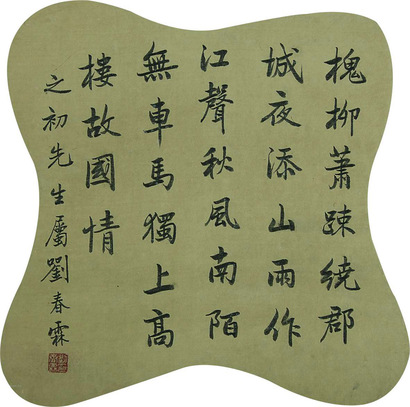 槐柳蕭踈繞郡
城夜添山雨作
江聲秋風南陌
無車馬獨上高
樓故國情
之初先生屬劉春霖